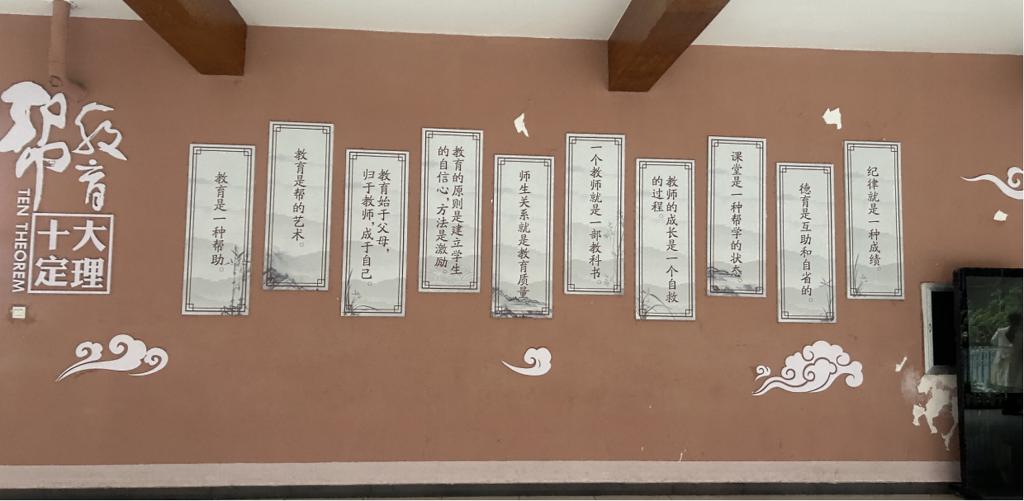 帮
教育
TEN THEOREM
十大
定理
教育是一种帮助。
教育是帮的艺术。
教育始于父母，
归于教师，成于自己。
教育的原则是建立学生
的自信心，方法是激励。
师生关系就是教育质量。
一个教师就是一部教科书。
教师的成长是一个自救
的过程。
课堂是一种帮学的状态。
德育是互助和自省的。
纪律就是一种成绩。